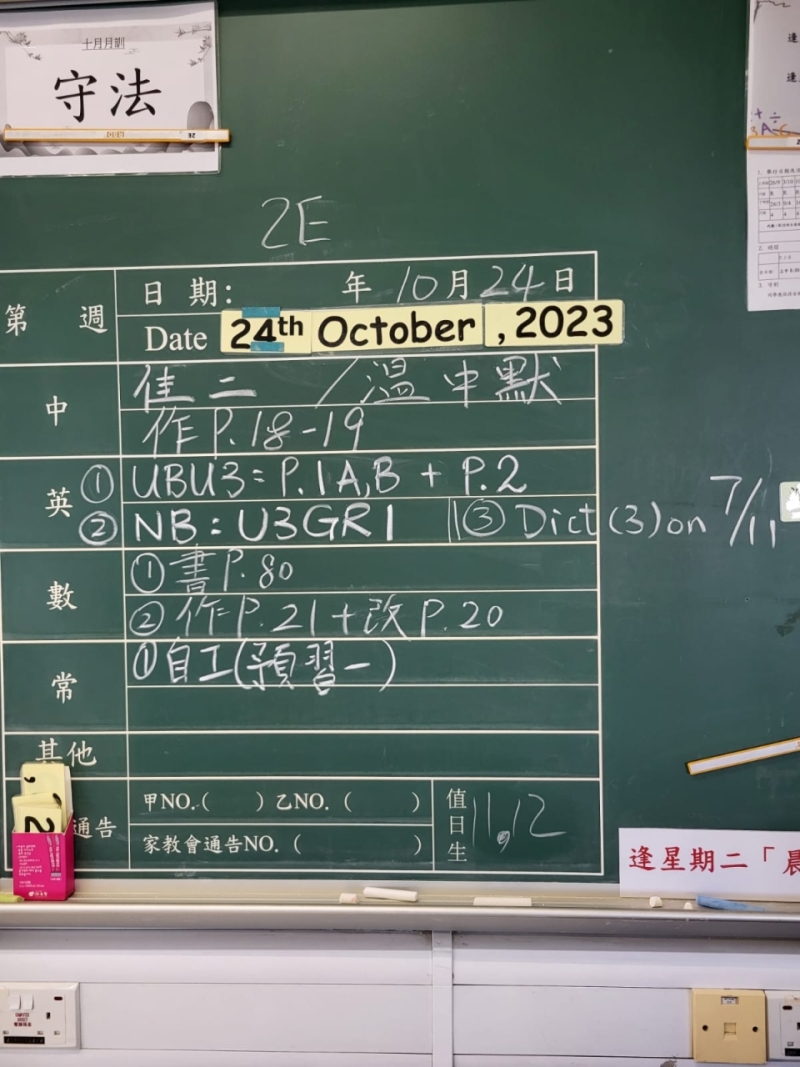 十月月訓
守法
2E
第 週
日期: 年 10月24日
Date 24th October , 2023
中
佳二 / 溫中默
作 P.18-19
英
① UBU3: P.1A,B + P.2
② NB: U3GR1 ③ Dict (3) on 7/11
數
①書 P.80
② 作 P.21 + 改 P.20
常
①自工(預習一)
其他
通告
甲NO.( ) 乙NO. ( )
家教會通告NO. ( )
值日生 11,12
逢星期二「晨